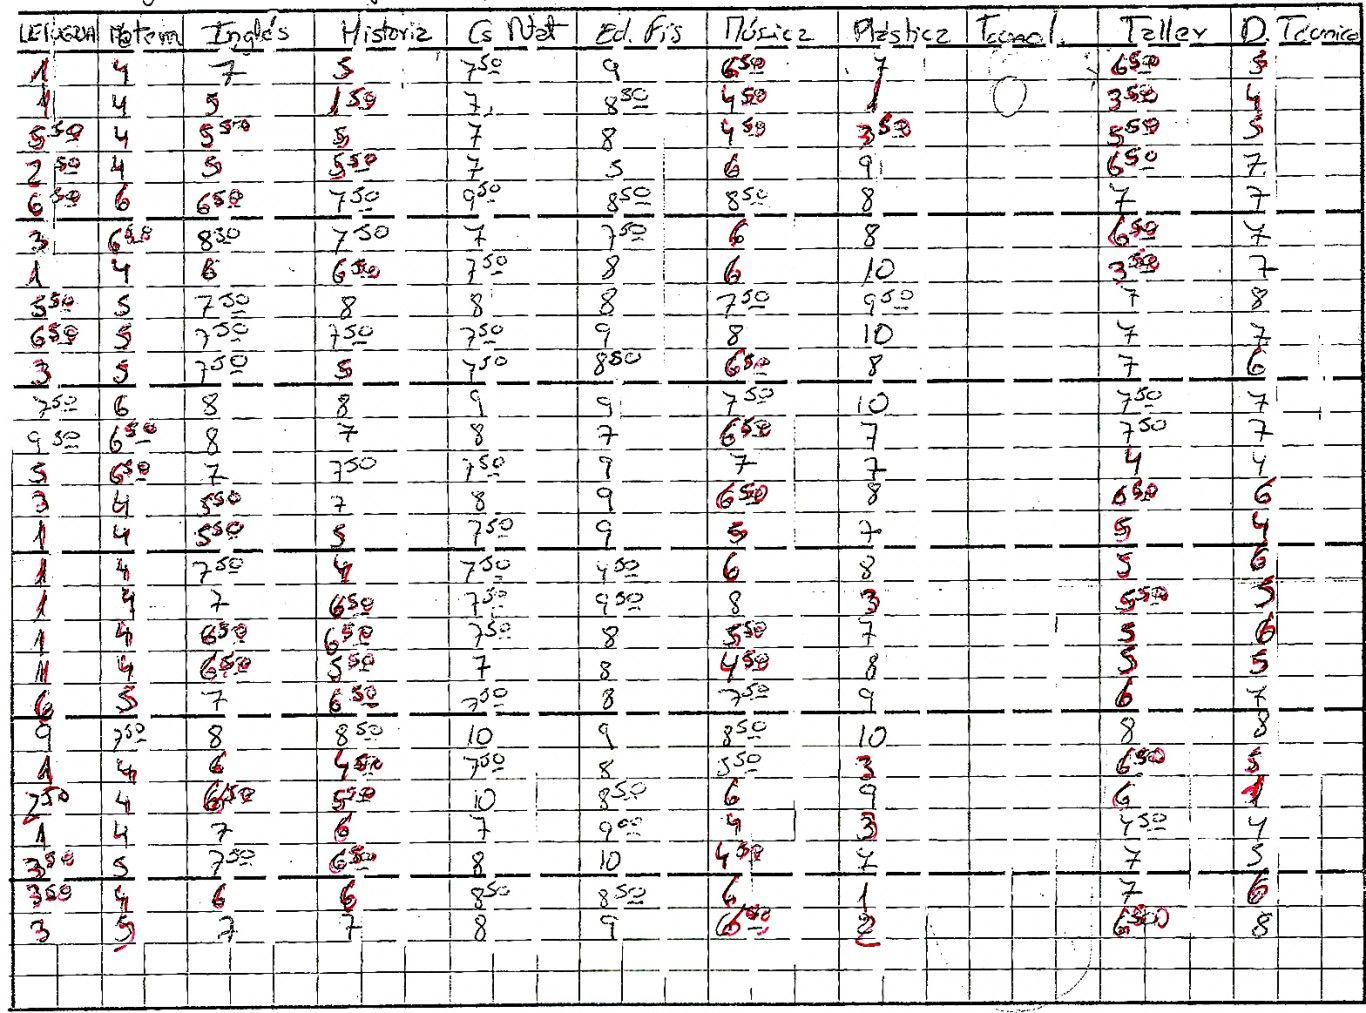 LENGUA Matem Inglés Historia Cs Nat Ed. Fis Música Plástica Tecnol. Taller D. Técnica
1 4 7 5 7 50 9 6 50 7 6 50 5
1 4 5 1 50 7 8 50 4 50 1 3 50 4
5 50 4 5 50 5 7 8 4 50 3 50 5 50 5
2 50 4 5 5 50 7 5 6 9 6 50 7
6 50 6 6 50 7 50 9 50 8 50 8 50 8 7 7
3 6 50 8 50 7 50 7 7 50 6 8 6 50 7
1 4 6 6 50 7 50 8 6 10 3 50 7
5 50 5 7 50 8 8 8 7 50 9 50 7 8
6 50 5 7 50 7 50 7 50 9 8 10 7 7
3 5 7 50 5 7 50 8 50 6 50 8 7 6
7 50 6 8 8 9 9 7 50 10 7 50 7
9 50 6 50 8 7 8 7 6 50 7 7 50 7
5 6 50 7 7 50 7 50 9 7 7 4 4
3 4 5 50 7 8 9 6 50 8 6 50 6
1 4 5 50 5 7 50 9 5 7 5 4
1 4 7 50 4 7 50 4 50 6 8 5 6
1 4 7 6 50 7 50 9 50 8 3 5 50 5
1 4 6 50 6 50 7 50 8 5 50 7 5 6
1 4 6 50 5 50 7 8 4 50 8 5 5
6 5 7 6 50 7 50 8 7 50 9 6 7
9 7 50 8 8 50 10 9 8 50 10 8 8
1 4 6 4 50 7 50 8 5 50 3 6 50 5
2 50 4 6 50 5 50 10 8 50 6 9 6 1
1 4 7 6 7 9 00 4 3 4 50 4
3 50 5 7 50 6 50 8 10 4 50 7 7 5
3 50 4 6 6 8 50 8 50 6 1 7 6
3 5 7 7 8 9 6 50 2 6 50 8